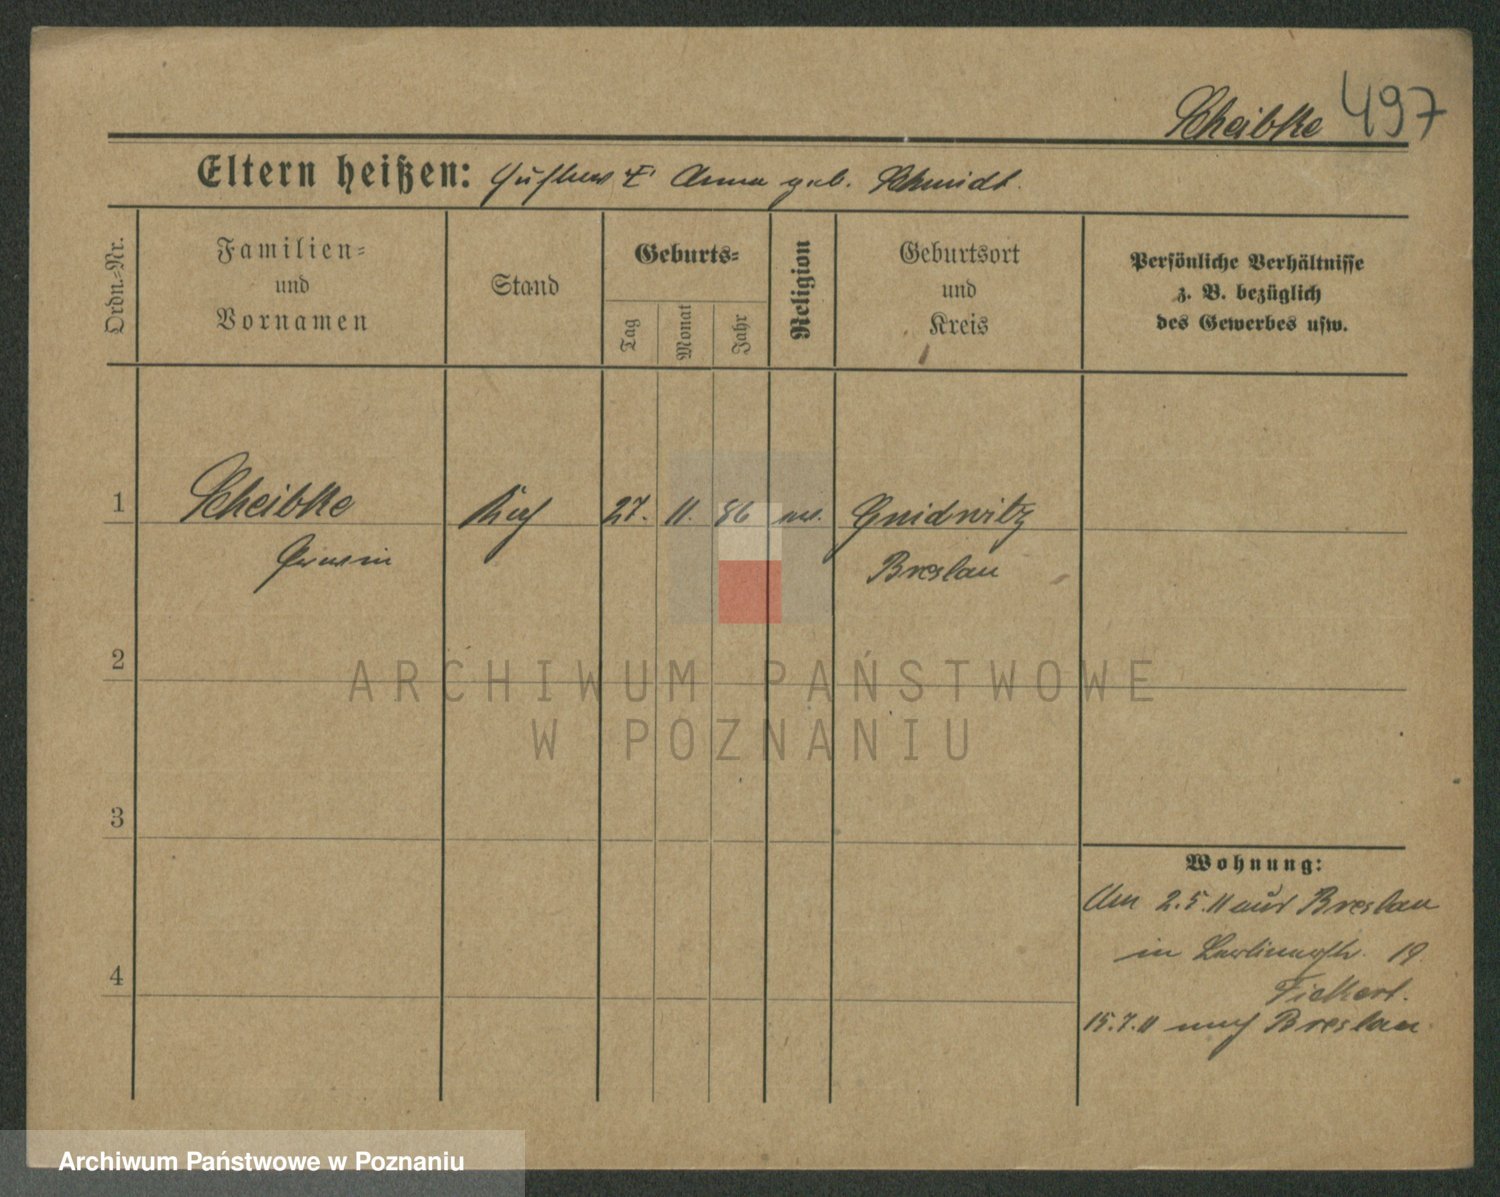 Scheibke 497
Eltern heißen: Gustav u. Anna geb. Schmidt.
Ordn.-Nr.
Familien-
und
Vornamen
Stand
Geburts-
Tag
Monat
Jahr
Religion
Geburtsort
und
Kreis
Persönliche Verhältnisse
z. B. bezüglich
des Gewerbes usw.
1 Scheibke Koch 27. 11. 86 Gnidwitz
Erwin Breslau
2
ARCHIWUM PAŃSTWOWE
W POZNANIU
3
Wohnung:
Am 2.5.11 aus Breslau
in 19
4
Tickert.
15.7.11 nach Breslau
Archiwum Państwowe w Poznaniu